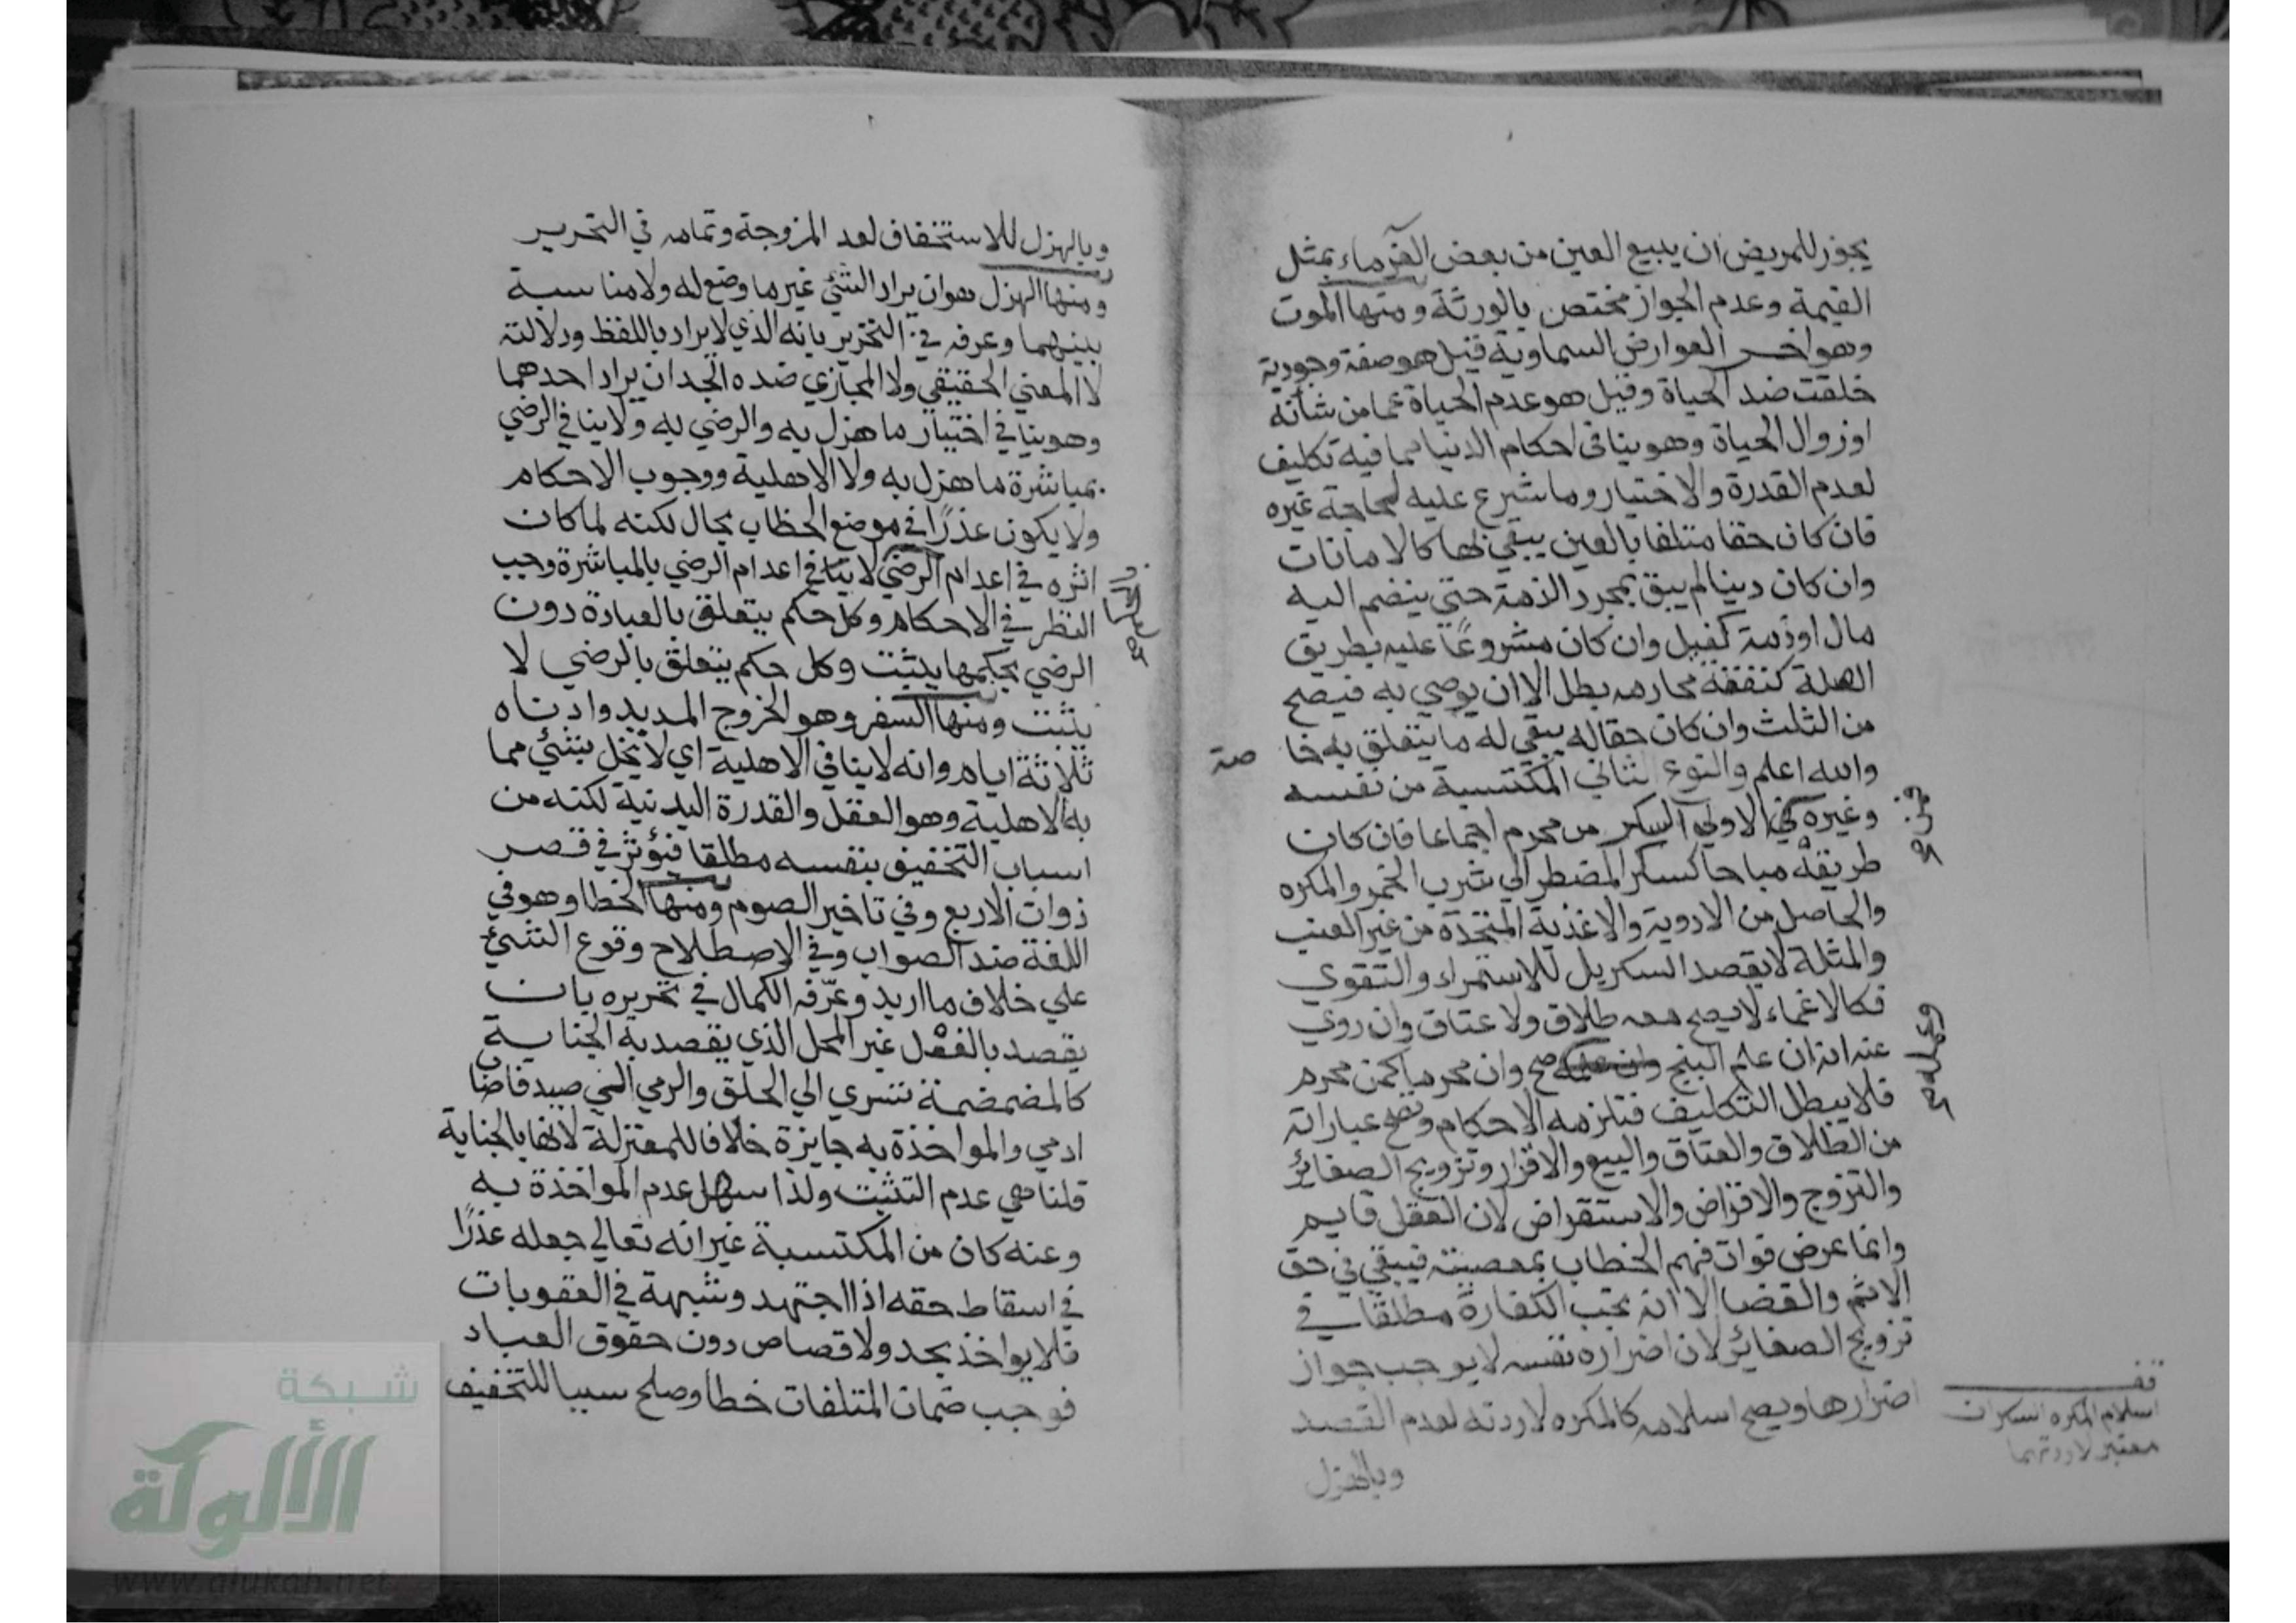 يجوز للمريض ان يبيع العين من بعض الغرماء بمثل
القيمة وعدم الجواز مختص بالورثة ومنها الموت
وهو اخر العوارض السماوية قيل هو صفة وجودية
خلقت ضد الحياة وقيل هو عدم الحياة عما من شأنه
او زوال الحياة وهو ينافى احكام الدنيا مما فيه تكليف
لعدم القدرة والاختيار وما شرع عليه لحاجة غيره
فان كان حقا متلفا بالعين يبقي بها كالامانات
وان كان دينا لم يبق بمجرد الذمة حتي ينضم اليه
مال او ذمة كفيل وان كان مشروعًا عليه بطريق
الصلة كنفقة محارمه بطل الا ان يوصي به فيصح
من الثلث وان كان حقا له يبقي له ما يتعلق به خا صة
والله اعلم والنوع الثاني المكتسبة من نفسه
وغيره فمن الاولي السكر من محرم اجماعا فان كان
طريقه مباحا كسكر المضطر الي شرب الخمر والمكره
والحاصل من الادوية والاغذية المتخذة من غير العنب
والمثلة لا يقصد السكر بل للاستمراء والتقوي
فكالاغماء لا يصح معه طلاق ولا عتاق وان روي
عنه انه ان علم البنج صح وان محرما كمن محرم
فلا يبطل التكليف فتلزمه الاحكام وتصح عباراته
من الطلاق والعتاق والبيع والاقرار وتزويج الصغائر
والتزوج والاقراض والاستقراض لان العقل قايم
وانما عرض فوات فهم الخطاب بمعصيته فيبقي في حق
الاثم والقضا الا انه يجب الكفارة مطلقا في
تزويج الصغائر لان اضراره نفسه لا يوجب جواز
اضرارها ويصح اسلامه كالمكره لا ردته لعدم القصد
وبالهزل
قف
اسلام المكره السكران
معتبر لا ردتهما
وبالهزل للاستخفاف لعد المزوجة وتمامه في التحرير
ومنها الهزل هو ان يراد الشئ غير ما وضع له ولا مناسبة
بينهما وعرفه في التحرير بانه الذي لا يراد باللفظ ودلالته
لا المعني الحقيقي ولا المجازي ضده الجد ان يراد احدهما
وهو ينافي اختيار ما هزل به والرضي به ولا ينافي الرضي
بمباشرة ما هزل به ولا الاهلية ووجوب الاحكام
ولا يكون عذرًا في موضع الخطاب بحال لكنه لما كان
اثره في اعدام الرضي لا ينافي اعدام الرضي بالمباشرة وجب
النظر في الاحكام وكل حكم يتعلق بالعبادة دون
الرضي بحكمها يثبت وكل حكم يتعلق بالرضي لا
يثبت ومنها السفر وهو الخروج المديد وادناه
ثلاثة ايام وانه لا ينافي الاهلية اي لا يخل بشئ مما
به الاهلية وهو العقل والقدرة البدنية لكنه من
اسباب التخفيف بنفسه مطلقا فيؤثر في قصر
ذوات الاربع وفي تاخير الصوم ومنها الخطا وهو في
اللغة ضد الصواب وفي الاصطلاح وقوع الشئ
علي خلاف ما اريد وعرّفه الكمال في تحريره بان
يقصد بالفعل غير المحل الذي يقصد به الجناية
كالمضمضة تسري الي الحلق والرمي الي صيد فاصا
ادمي والمواخذة به جايزة خلافا للمعتزلة لانها بالجناية
قلنا هي عدم التثبت ولذا سهل عدم المواخذة به
وعنه كان من المكتسبة غير انه تعالي جعله عذرًا
في اسقاط حقه اذا اجتهد وشبهة في العقوبات
فلا يواخذ بحد ولا قصاص دون حقوق العباد
فوجب ضمان المتلفات خطا وصلح سببا للتخفيف
شبكة
الألوكة
www.alukah.net